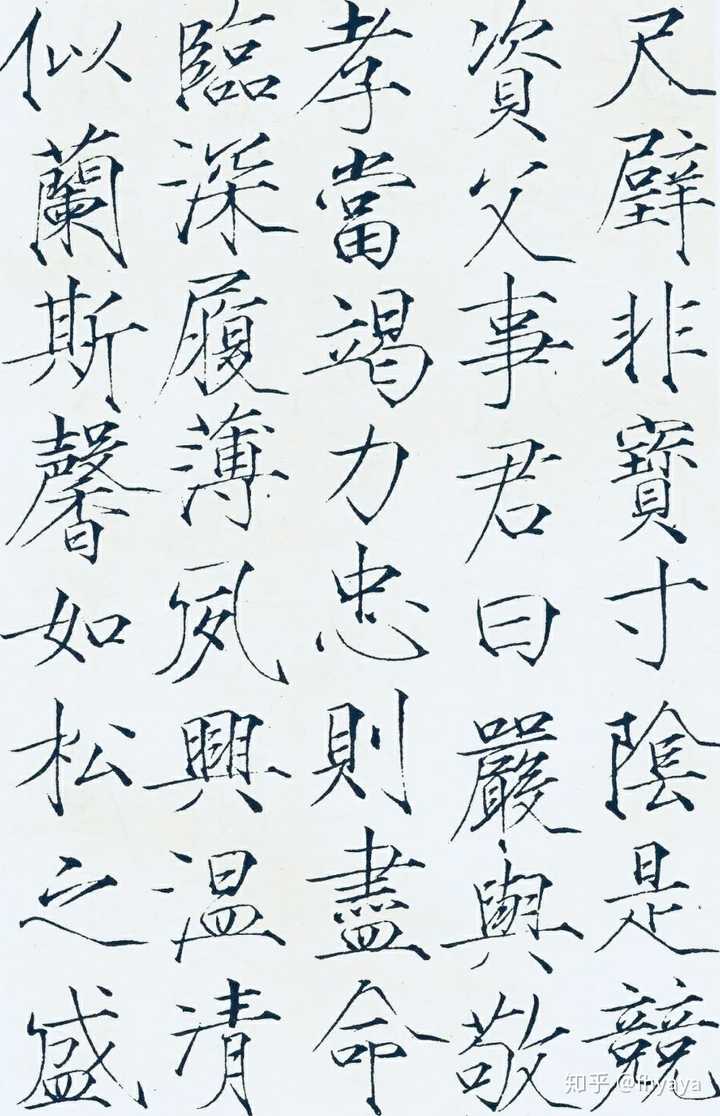 尺璧非寶寸陰是競
資父事君曰嚴與敬
孝當竭力忠則盡命
臨深履薄夙興温清
似蘭斯馨如松之盛
知乎 @fhyaya